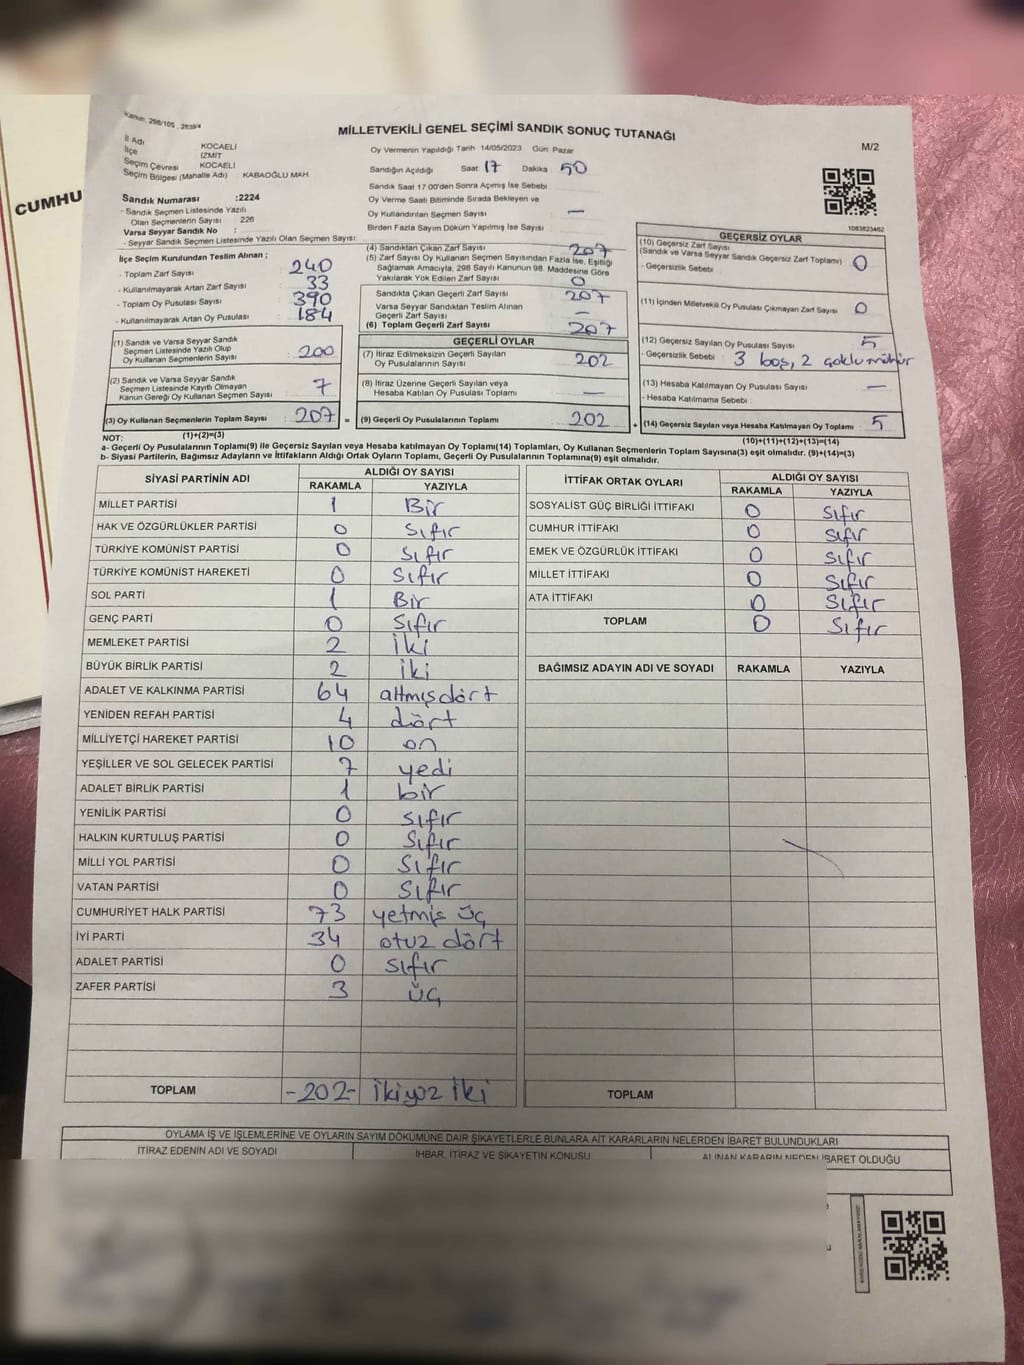 CUMHU
Kanun, 298/105, 2839/4
MİLLETVEKİLİ GENEL SEÇİMİ SANDIK SONUÇ TUTANAĞI
M/2
İl Adı KOCAELİ
İlçe İZMİT
Seçim Çevresi KOCAELİ
Seçim Bölgesi (Mahalle Adı) KABAOĞLU MAH.
Sandık Numarası :2224
- Sandık Seçmen Listesinde Yazılı
Olan Seçmenlerin Sayısı : 226
Varsa Seyyar Sandık No :
- Seyyar Sandık Seçmen Listesinde Yazılı Olan Seçmen Sayısı:
Oy Vermenin Yapıldığı Tarih 14/05/2023 Gün: Pazar
Sandığın Açıldığı Saat 17 Dakika 50
Sandık Saat 17.00'den Sonra Açımış İse Sebebi
Oy Verme Saati Bitiminde Sırada Bekleyen ve
Oy Kullandırılan Seçmen Sayısı —
Birden Fazla Sayım Döküm Yapılmış İse Sayısı
1083823462
İlçe Seçim Kurulundan Teslim Alınan ;
- Toplam Zarf Sayısı : 240
- Kullanılmayarak Artan Zarf Sayısı : 33
- Toplam Oy Pusulası Sayısı : 390
- Kullanılmayarak Artan Oy Pusulası : 184
(1) Sandık ve Varsa Seyyar Sandık
Seçmen Listesinde Yazılı Olup
Oy Kullanan Seçmenlerin Sayısı : 200
(2) Sandık ve Varsa Seyyar Sandık
Seçmen Listesinde Kayıtlı Olmayan
Kanun Gereği Oy Kullanan Seçmen Sayısı : 7
(3) Oy Kullanan Seçmenlerin Toplam Sayısı : 207 =
(1)+(2)=(3)
(4) Sandıktan Çıkan Zarf Sayısı : 207
(5) Zarf Sayısı Oy Kullanan Seçmen Sayısından Fazla İse, Eşitliği
Sağlamak Amacıyla, 298 Sayılı Kanunun 98. Maddesine Göre
Yakılarak Yok Edilen Zarf Sayısı : 0
Sandıkta Çıkan Geçerli Zarf Sayısı : 207
Varsa Seyyar Sandıktan Teslim Alınan
Geçerli Zarf Sayısı : —
(6) Toplam Geçerli Zarf Sayısı : 207
GEÇERLİ OYLAR
(7) İtiraz Edilmeksizin Geçerli Sayılan
Oy Pusulalarının Sayısı : 202
(8) İtiraz Üzerine Geçerli Sayılan veya
Hesaba Katılan Oy Pusulası Toplamı : —
(9) Geçerli Oy Pusulalarının Toplamı : 202 +
GEÇERSİZ OYLAR
(10) Geçersiz Zarf Sayısı
(Sandık ve Varsa Seyyar Sandık Geçersiz Zarf Toplamı) : 0
- Geçersizlik Sebebi :
(11) İçinden Milletvekili Oy Pusulası Çıkmayan Zarf Sayısı : 0
(12) Geçersiz Sayılan Oy Pusulası Sayısı : 5
- Geçersizlik Sebebi : 3 boş, 2 çoklu mühür
(13) Hesaba Katılmayan Oy Pusulası Sayısı : —
- Hesaba Katılmama Sebebi :
(14) Geçersiz Sayılan veya Hesaba Katılmayan Oy Toplamı : 5
(10)+(11)+(12)+(13)=(14)
NOT:
a- Geçerli Oy Pusulalarının Toplamı(9) ile Geçersiz Sayılan veya Hesaba katılmayan Oy Toplamı(14) Toplamları, Oy Kullanan Seçmenlerin Toplam Sayısına(3) eşit olmalıdır. (9)+(14)=(3)
b- Siyasi Partilerin, Bağımsız Adayların ve İttifakların Aldığı Ortak Oyların Toplamı, Geçerli Oy Pusulalarının Toplamına(9) eşit olmalıdır.
SİYASİ PARTİNİN ADI ALDIĞI OY SAYISI
RAKAMLA YAZIYLA
MİLLET PARTİSİ 1 Bir
HAK VE ÖZGÜRLÜKLER PARTİSİ 0 sıfır
TÜRKİYE KOMÜNİST PARTİSİ 0 sıfır
TÜRKİYE KOMÜNİST HAREKETİ 0 sıfır
SOL PARTİ 1 Bir
GENÇ PARTİ 0 sıfır
MEMLEKET PARTİSİ 2 iki
BÜYÜK BİRLİK PARTİSİ 2 iki
ADALET VE KALKINMA PARTİSİ 64 altmışdört
YENİDEN REFAH PARTİSİ 4 dört
MİLLİYETÇİ HAREKET PARTİSİ 10 on
YEŞİLLER VE SOL GELECEK PARTİSİ 7 yedi
ADALET BİRLİK PARTİSİ 1 bir
YENİLİK PARTİSİ 0 sıfır
HALKIN KURTULUŞ PARTİSİ 0 sıfır
MİLLİ YOL PARTİSİ 0 sıfır
VATAN PARTİSİ 0 sıfır
CUMHURİYET HALK PARTİSİ 73 yetmiş üç
İYİ PARTİ 34 otuz dört
ADALET PARTİSİ 0 sıfır
ZAFER PARTİSİ 3 üç
TOPLAM -202- ikiyüz iki
İTTİFAK ORTAK OYLARI ALDIĞI OY SAYISI
RAKAMLA YAZIYLA
SOSYALİST GÜÇ BİRLİĞİ İTTİFAKI 0 sıfır
CUMHUR İTTİFAKI 0 sıfır
EMEK VE ÖZGÜRLÜK İTTİFAKI 0 sıfır
MİLLET İTTİFAKI 0 sıfır
ATA İTTİFAKI 0 sıfır
TOPLAM 0 sıfır
BAĞIMSIZ ADAYIN ADI VE SOYADI RAKAMLA YAZIYLA
TOPLAM
OYLAMA İŞ VE İŞLEMLERİNE VE OYLARIN SAYIM DÖKÜMÜNE DAİR ŞİKAYETLERLE BUNLARA AİT KARARLARIN NELERDEN İBARET BULUNDUKLARI
İTİRAZ EDENİN ADI VE SOYADI İHBAR, İTİRAZ VE ŞİKAYETİN KONUSU ALINAN KARARIN NEDEN İBARET OLDUĞU